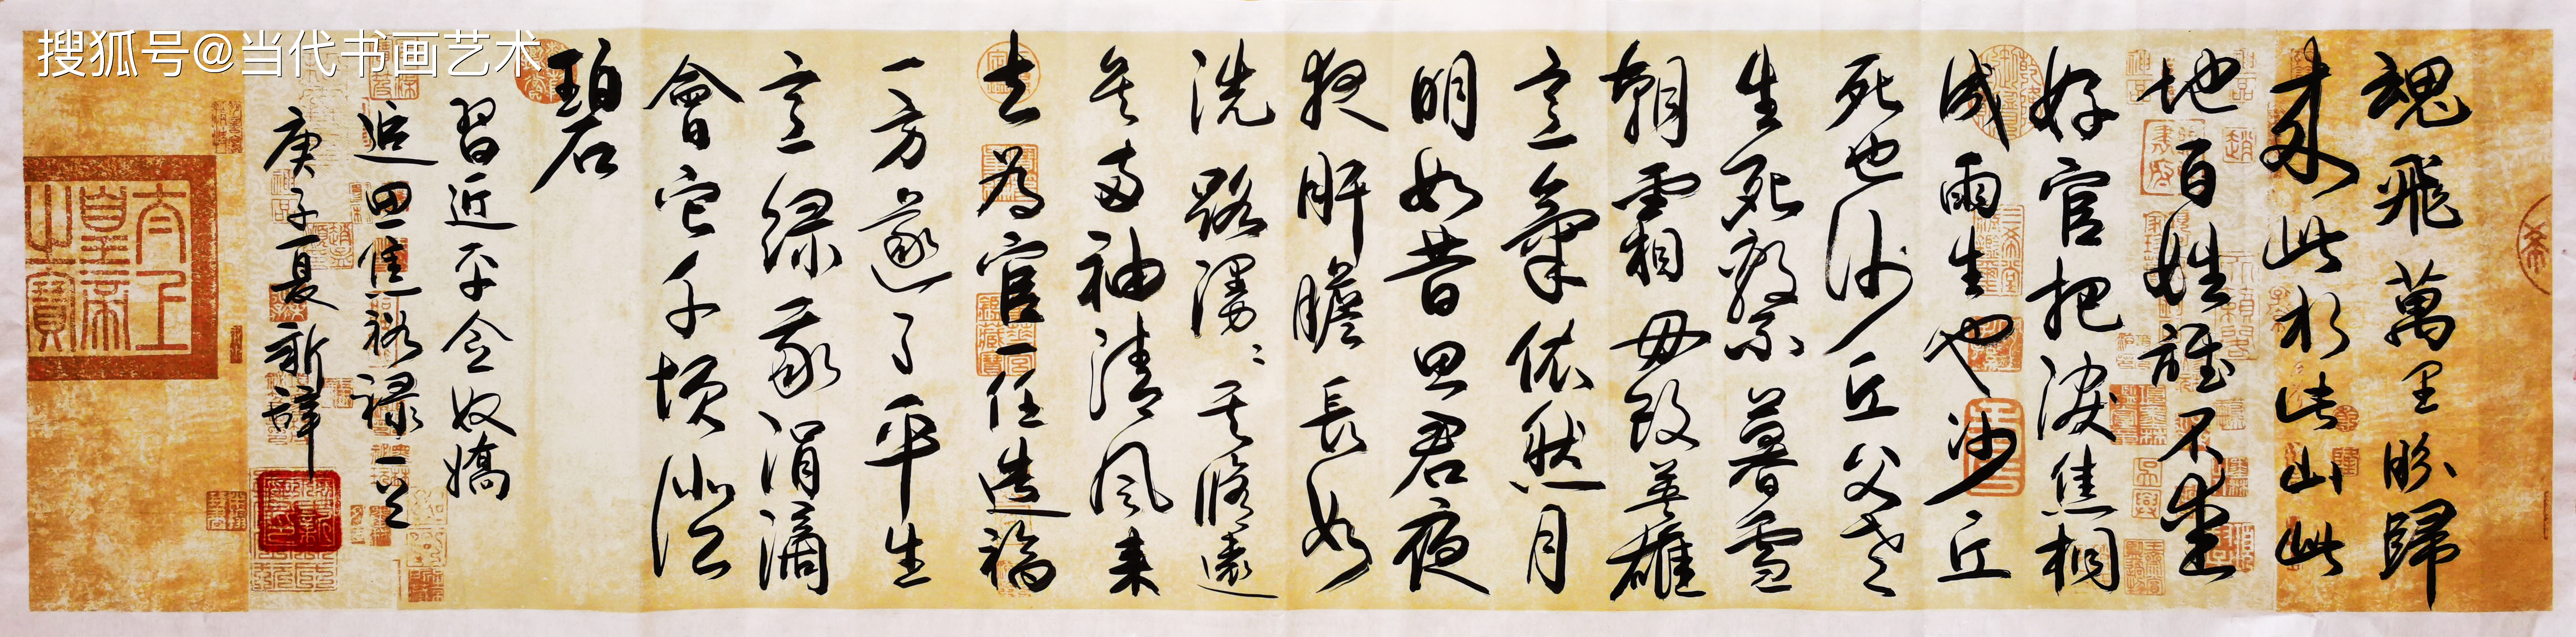 搜狐号@当代书画艺术
魂飛萬里盼歸
來此水此山此
地百姓誰不愛
好官把淚焦桐
成雨生也沙丘
死也沙丘父老
生死繫暮雪
朝霜毋改英雄
意氣依然月
明如昔思君夜
夜肝膽長如
洗路漫〻其修遠
矣两袖清風来
去為官一任造福
一方遂了平生
意綠我涓滴
會它千頃澄
碧
習近平念奴嬌
追思焦裕禄一首
庚子夏新
太上皇帝之寶